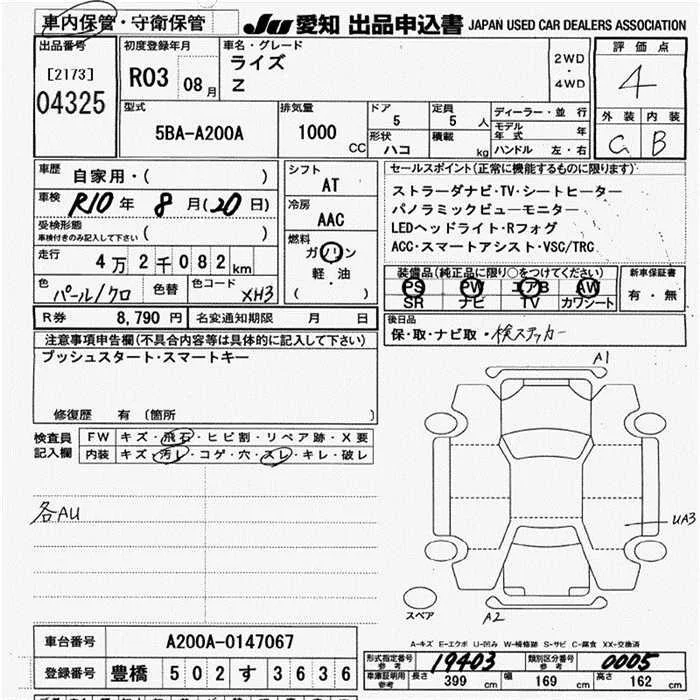 車内保管・守衛保管 JU 愛知 出品申込書 JAPAN USED CAR DEALERS ASSOCIATION
出品番号 初度登録年月 車名・グレード 評価点
[2173] R03 08月 ライズ 2WD・4WD 4
04325 Z
型式 排気量 ドア 定員 ディーラー・並行 外装 内装
5BA-A200A 1000 CC 5 5 人 モデル年式 年 C B
形状 積載 ハンドル 左・右
ハコ kg
車歴 自家用・( ) シフト セールスポイント(正常に機能するものに限ります)
AT ストラーダナビ・TV・シートヒーター
車検 R10年 8月(20日) 冷房 パノラミックビューモニター
受検形態 AAC LEDヘッドライト・Rフォグ
車検付きのみ記入して下さい ( ) ACC・スマートアシスト・VSC/TRC
走行 4万2千082km 燃料 ガソリン
軽・油
( )
装備品(純正品に限り○をつけてください) 新車保証書
PS PW エアB AW 有・無
SR ナビ TV カワシート
色 パール/クロ 色替 色コード XH3
R券 8,790円 名変通知期限 月 日 後日品
保・取・ナビ取・検ステッカー
注意事項申告欄(不具合内容等は具体的に記入して下さい)
プッシュスタート・スマートキー
A1
修復歴 有 (箇所 )
検査員 FW キズ・飛石・ヒビ割・リペア跡・X要
記入欄 内装 キズ・汚レ・コゲ・穴・スレ・キレ・破レ
各AU
UA3
スペア A2
A-キズ E-エクボ U-凹み W-補修跡 S-サビ C-腐食 XX-交換済
車台番号 A200A-0147067
形式指定番号 参考 19403 類別区分番号 参考 0005
登録番号 豊橋 502 す 3636
車庫証明用 参考 長さ 399 cm 幅 169 cm 高さ 162 cm